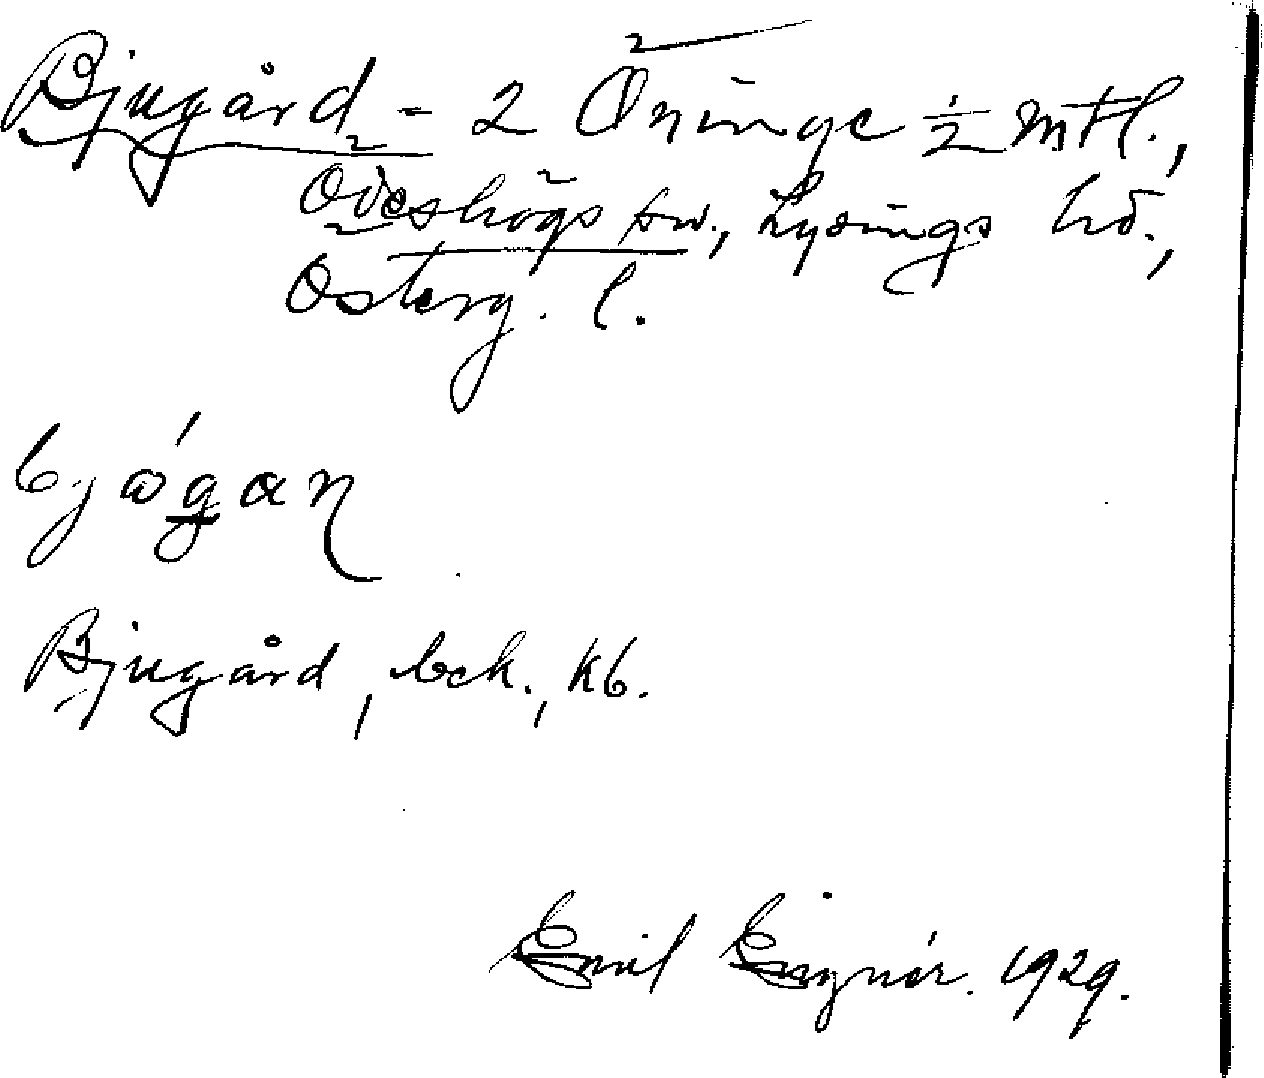 Bjugård - 2 Öninge ½ mtl.,
Ödeshögs sn., Lysings hd.,
Österg. l.
bj
Bjugård, bck., kb.
Emil Eignér. 1929.